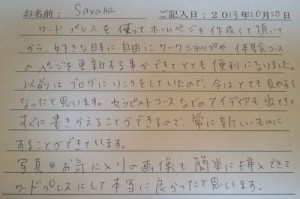 お名前: Sayaka ご記入日:2013年10月10日
ワードプレスを使ってホームページを作成して頂いて
から、好きな日時に自由にワークショップや体験会コース
のページを更新する事ができてとても便利になりました。
以前はブログにリンクをしていたので、今はとても見やすく
なったと思います。セラピストコースなどのアイディアも出てきて
すぐに書きかえることができるので、常に新しいものに
することができています。
写真やお気に入りの画像も簡単に挿入できて
ワードプレスにして本当に良かったと思います。